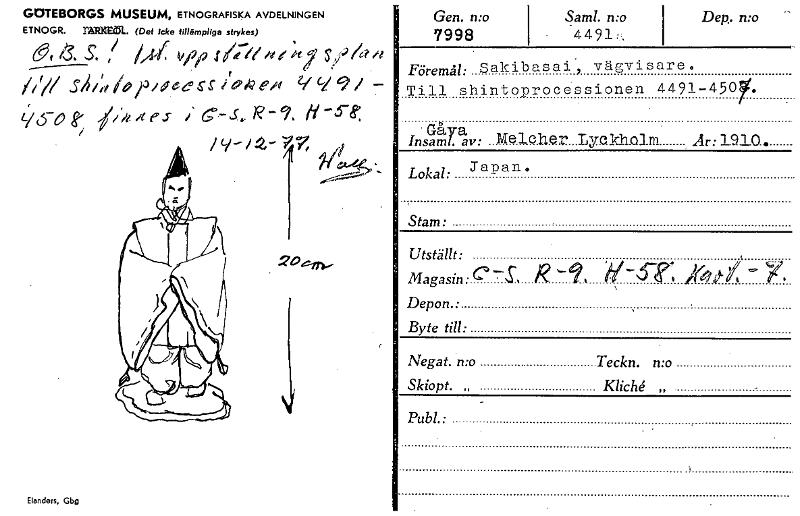 GÖTEBORGS MUSEUM, ETNOGRAFISKA AVDELNINGEN
ETNOGR. ARKEOL. (Det icke tillämpliga strykes)
O.B.S.! 1st. uppställningsplan
till shintoprocessionen 4491-
4508, finnes i C-S. R-9. H-58.
14-12-77.
20 cm
Elanders, Gbg
Gen. n:o Saml. n:o Dep. n:o
7998 4491
Föremål: Sakibasai, vägvisare.
Till shintoprocessionen 4491-4507.
Gåva
Insaml. av: Melcher Lyckholm År: 1910.
Lokal: Japan.
Stam:
Utställt:
Magasin: C-S. R-9. H-58. Kart.-7.
Depon.:
Byte till:
Negat. n:o Teckn. n:o
Skiopt. „ Kliché „
Publ.: